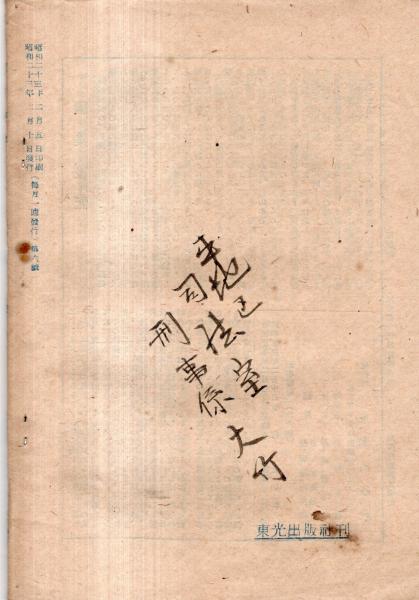 昭和二十三年二月五日印刷
昭和二十三年二月十日發行(毎月一回發行)第六號
地
司法室
刑事係
大竹
東光出版社刊